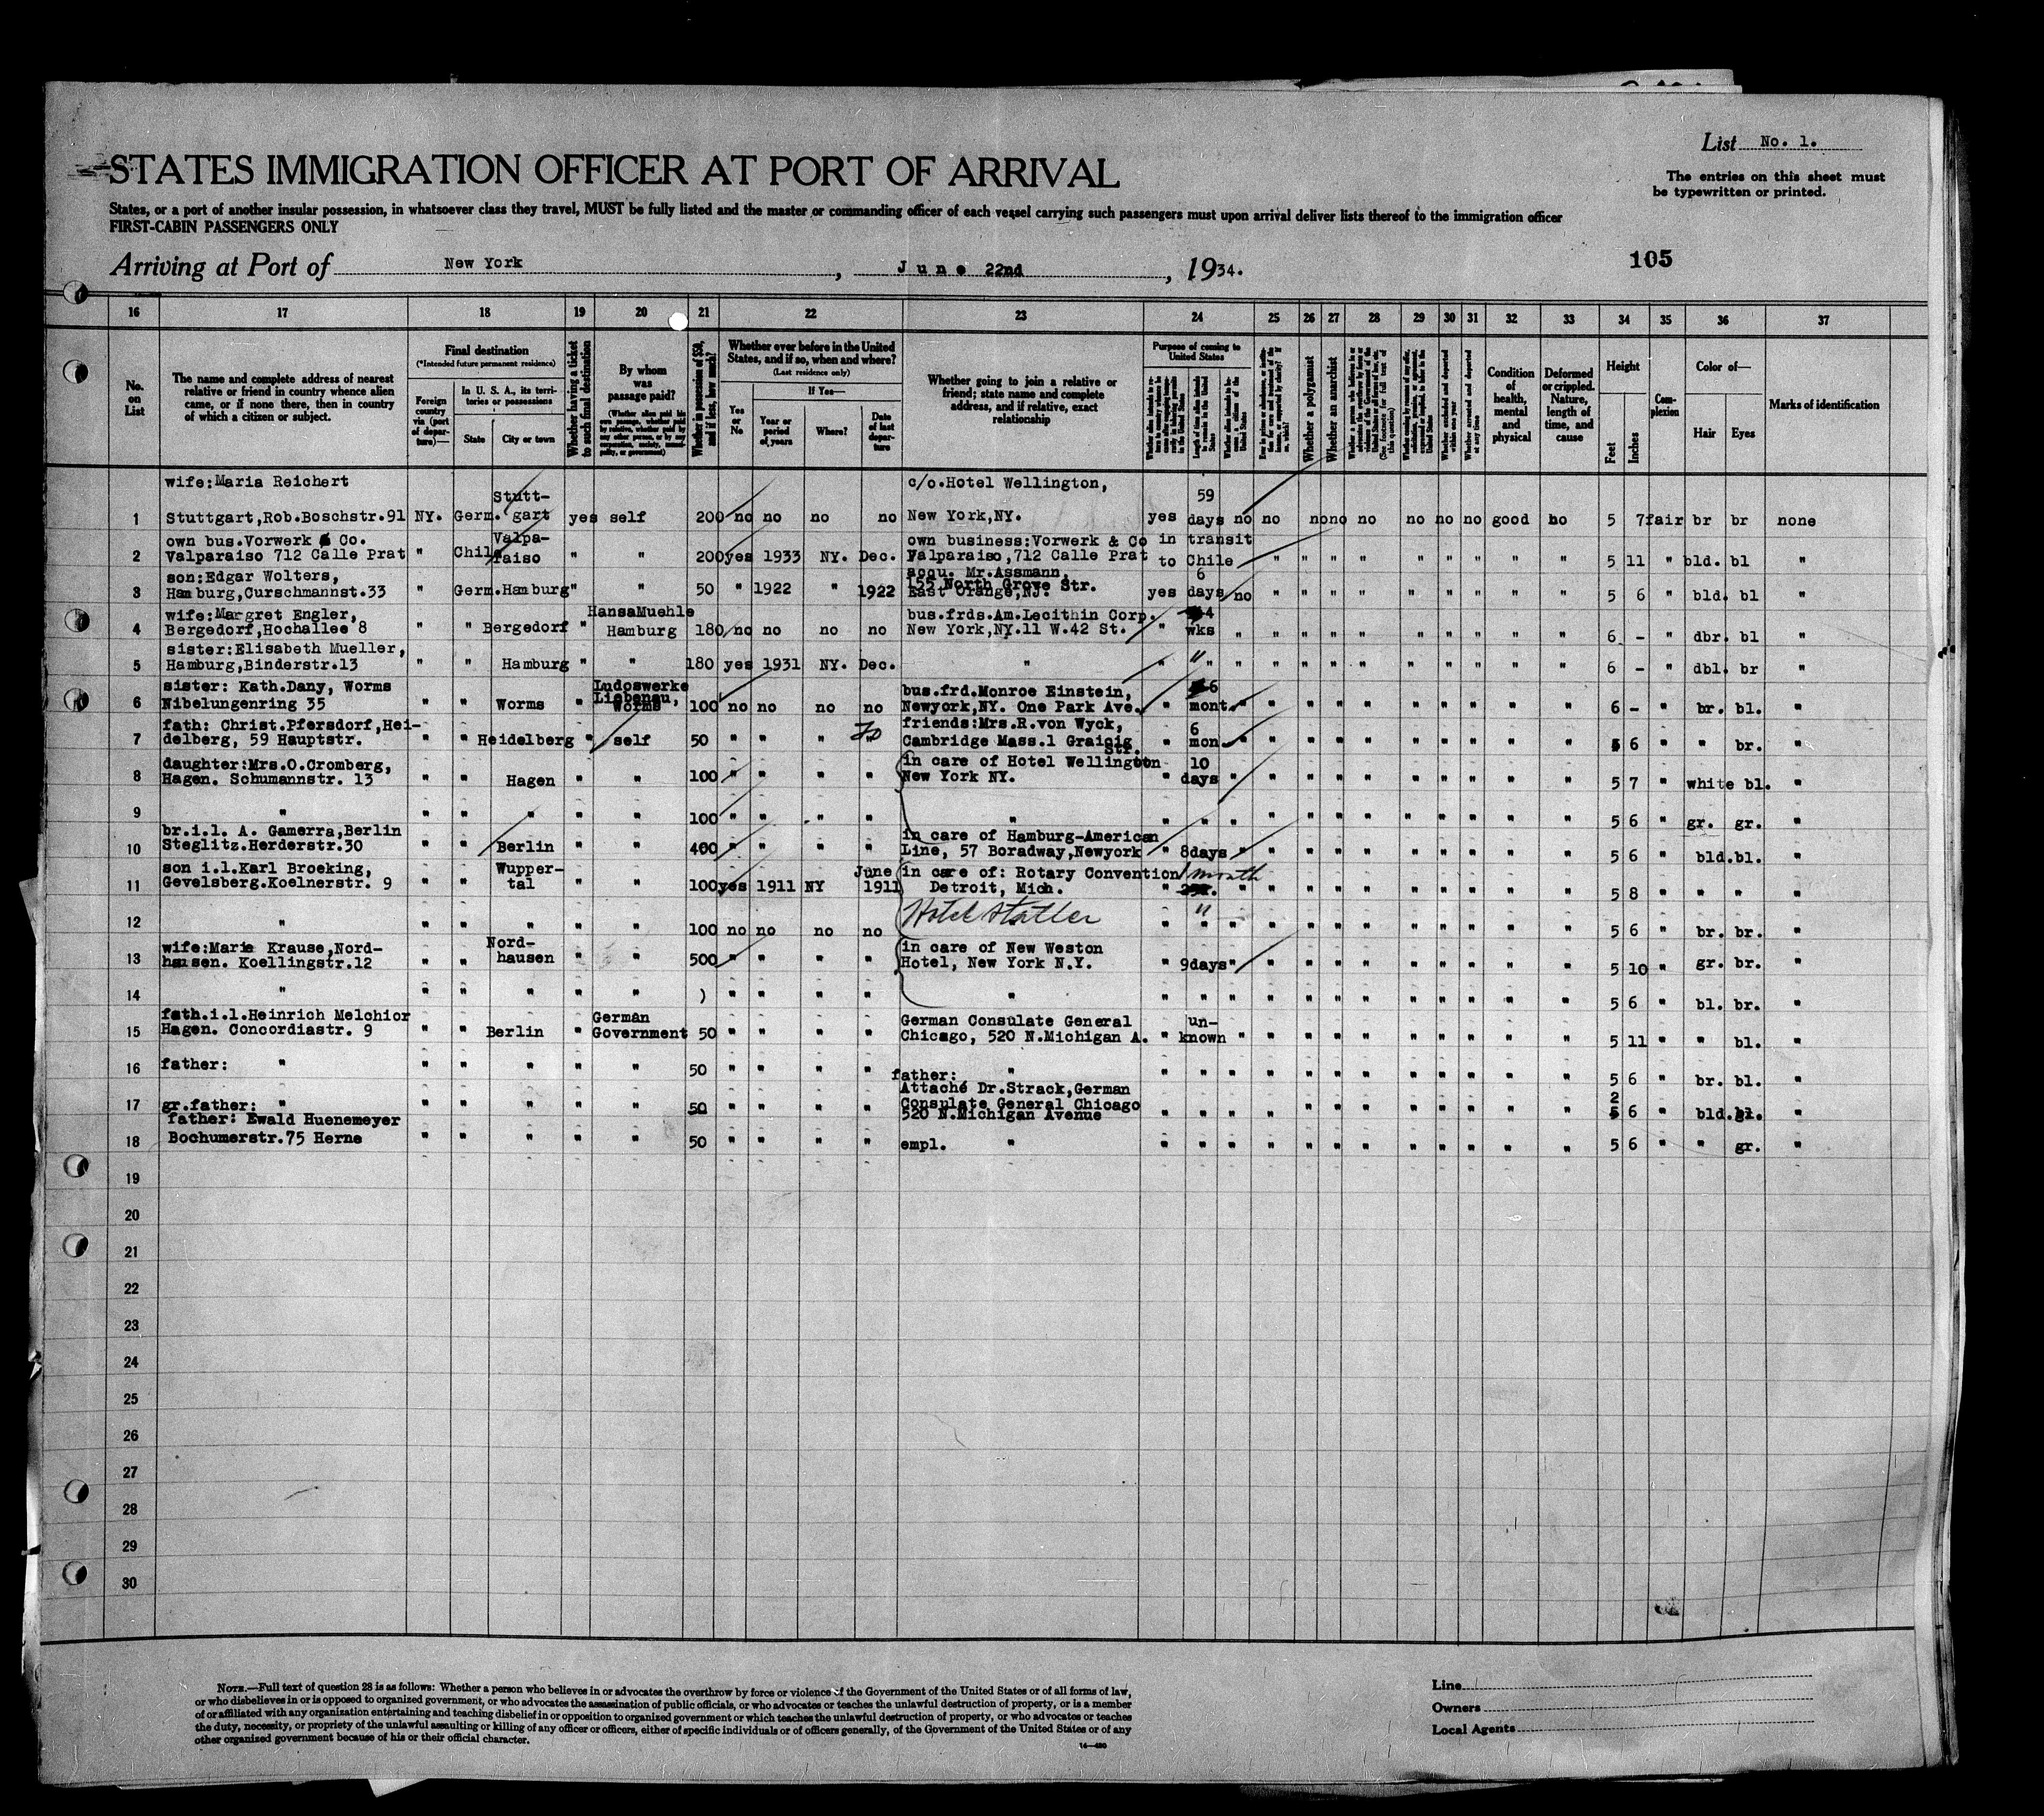 List No. 1.
STATES IMMIGRATION OFFICER AT PORT OF ARRIVAL
The entries on this sheet must
be typewritten or printed.
States, or a port of another insular possession, in whatsoever class they travel, MUST be fully listed and the master or commanding officer of each vessel carrying such passengers must upon arrival deliver lists thereof to the immigration officer
FIRST-CABIN PASSENGERS ONLY
Arriving at Port of New York, June 22nd, 1934.
105
16 17 18 19 20 21 22 23 24 25 26 27 28 29 30 31 32 33 34 35 36 37
No. on List
The name and complete address of nearest relative or friend in country whence alien came, or if none there, then in country of which a citizen or subject.
Final destination
(*Intended future permanent residence)
Foreign country via (port of departure)—
In U. S. A., its territories or possessions
State
City or town
Whether having a ticket to such final destination
By whom was passage paid?
(Whether alien paid his own passage, whether paid by relative, whether paid by any other person, or by any corporation, society, municipality, or government)
Whether in possession of $50, and if less, how much?
Whether ever before in the United States, and if so, when and where?
(Last residence only)
Yes or No
If Yes—
Year or period of years
Where?
Date of last departure
Whether going to join a relative or friend; state name and complete address, and if relative, exact relationship
Purpose of coming to United States
Length of time alien intends to remain in the United States
Whether alien intends to become a citizen of the United States
Whether a polygamist
Whether an anarchist
(See footnote for full text of this question)
Whether excluded and deported within one year
Whether arrested and deported at any time
Condition of health, mental and physical
Deformed or crippled. Nature, length of time, and cause
Height
Feet
Inches
Complexion
Color of—
Hair
Eyes
Marks of identification
wife:Maria Reichert Stutt- c/o.Hotel Wellington, 59
1 Stuttgart,Rob.Boschstr.91 NY. Germ. gart yes self 200 no no no no New York,NY. yes days no no no no no no no no good no 5 7 fair br br none
own bus.Vorwerk & Co. Valpa- own business:Vorwerk & Co in transit
2 Valparaiso 712 Calle Prat " Chile raiso " " 200 yes 1933 NY. Dec. Valparaiso,712 Calle Prat to Chile " " " " " " " " " 5 11 " bld. bl "
son:Edgar Wolters, acqu. Mr.Assmann, 6
155 North Grove Str.
3 Hamburg,Curschmannst.33 " Germ. Hamburg " " 50 " 1922 " 1922 East Orange,NJ. yes days no " " " " " " " " " 5 6 " bld. bl "
wife:Margret Engler, HansaMuehle bus.frds.Am.Lecithin Corp. 4
4 Bergedorf,Hochallee 8 " " Bergedorf " Hamburg 180 no no no no New York,NY.11 W.42 St. " wks " " " " " " " " " " 6 - " dbr. bl "
sister:Elisabeth Mueller,
5 Hamburg,Binderstr.13 " " Hamburg " " 180 yes 1931 NY. Dec. " " " " " " " " " " " " " 6 - " dbl. br "
sister: Kath.Dany, Worms Ludoswerke bus.frd.Monroe Einstein, 6
Liebenau,
6 Nibelungenring 35 " " Worms " Worms 100 no no no no Newyork,NY. One Park Ave. " mont. " " " " " " " " " " 6 - " br. bl. "
fath: Christ.Pfersdorf,Hei- friends:Mrs.R.von Wyck, 6
7 delberg, 59 Hauptstr. " " Heidelberg " self 50 " " " " Cambridge Mass.1 Graigig " mon " " " " " " " " " " 5 6 " " br. "
Str.
daughter:Mrs.O.Cromberg, in care of Hotel Wellington 10
8 Hagen. Schumannstr. 13 " " Hagen " " 100 " " " " New York NY. " days " " " " " " " " " " 5 7 " white bl. "
9 " " " " " " 100 " " " " " " " " " " " " " " " " " " 5 6 " gr. gr. "
br.i.l. A. Gamerra,Berlin in care of Hamburg-American
10 Steglitz.Herderstr.30 " " Berlin " " 400 " " " " Line, 57 Boradway,Newyork " 8days " " " " " " " " " " 5 6 " bld.bl. "
son i.l.Karl Broeking, Wupper- June in care of: Rotary Convention 1 month
11 Gevelsberg.Koelnerstr. 9 " " tal " " 100 yes 1911 NY 1911 Detroit, Mich. " " " " " " " " " " " 5 8 " " " "
Hotel Statler "
12 " " " " " " 100 no no no no " " " " " " " " " " " " 5 6 " br. br. "
wife:Marie Krause,Nord- Nord- in care of New Weston
13 hausen. Koellingstr.12 " " hausen " " 500 " " " " Hotel, New York N.Y. " 9days " " " " " " " " " " 5 10 " gr. br. "
14 " " " " " " ) " " " " " " " " " " " " " " " " " " 5 6 " bl. br. "
fath.i.l.Heinrich Melchior German German Consulate General un-
15 Hagen. Concordiastr. 9 " " Berlin " Government 50 " " " " Chicago, 520 N.Michigan A. " known " " " " " " " " " " 5 11 " " bl. "
16 father: " " " " " " 50 " " " " " " " " " " " " " " " " " " 5 6 " br. bl. "
father:
Attaché Dr.Strack,German
17 gr.father: " " " " " " 50 " " " " Consulate General Chicago " " " " " " " " " " " " 2 6 " bld. bl. "
father: Ewald Huenemeyer 520 N.Michigan Avenue
18 Bochumerstr.75 Herne " " " " " 50 " " " " empl. " " " " " " " " " " " " " 5 6 " " gr. "
19
20
21
22
23
24
25
26
27
28
29
30
NOTE.—Full text of question 28 is as follows: Whether a person who believes in or advocates the overthrow by force or violence of the Government of the United States or of all forms of law,
or who disbelieves in or is opposed to organized government, or who advocates the assassination of public officials, or who advocates or teaches the unlawful destruction of property, or is a member
of or affiliated with any organization entertaining and teaching disbelief in or opposition to organized government or which teaches the unlawful destruction of property, or who advocates or teaches
the duty, necessity, or propriety of the unlawful assaulting or killing of any officer or officers, either of specific individuals or of officers generally, of the Government of the United States or of any
other organized government because of his or their official character.
14—480
Line
Owners
Local Agents